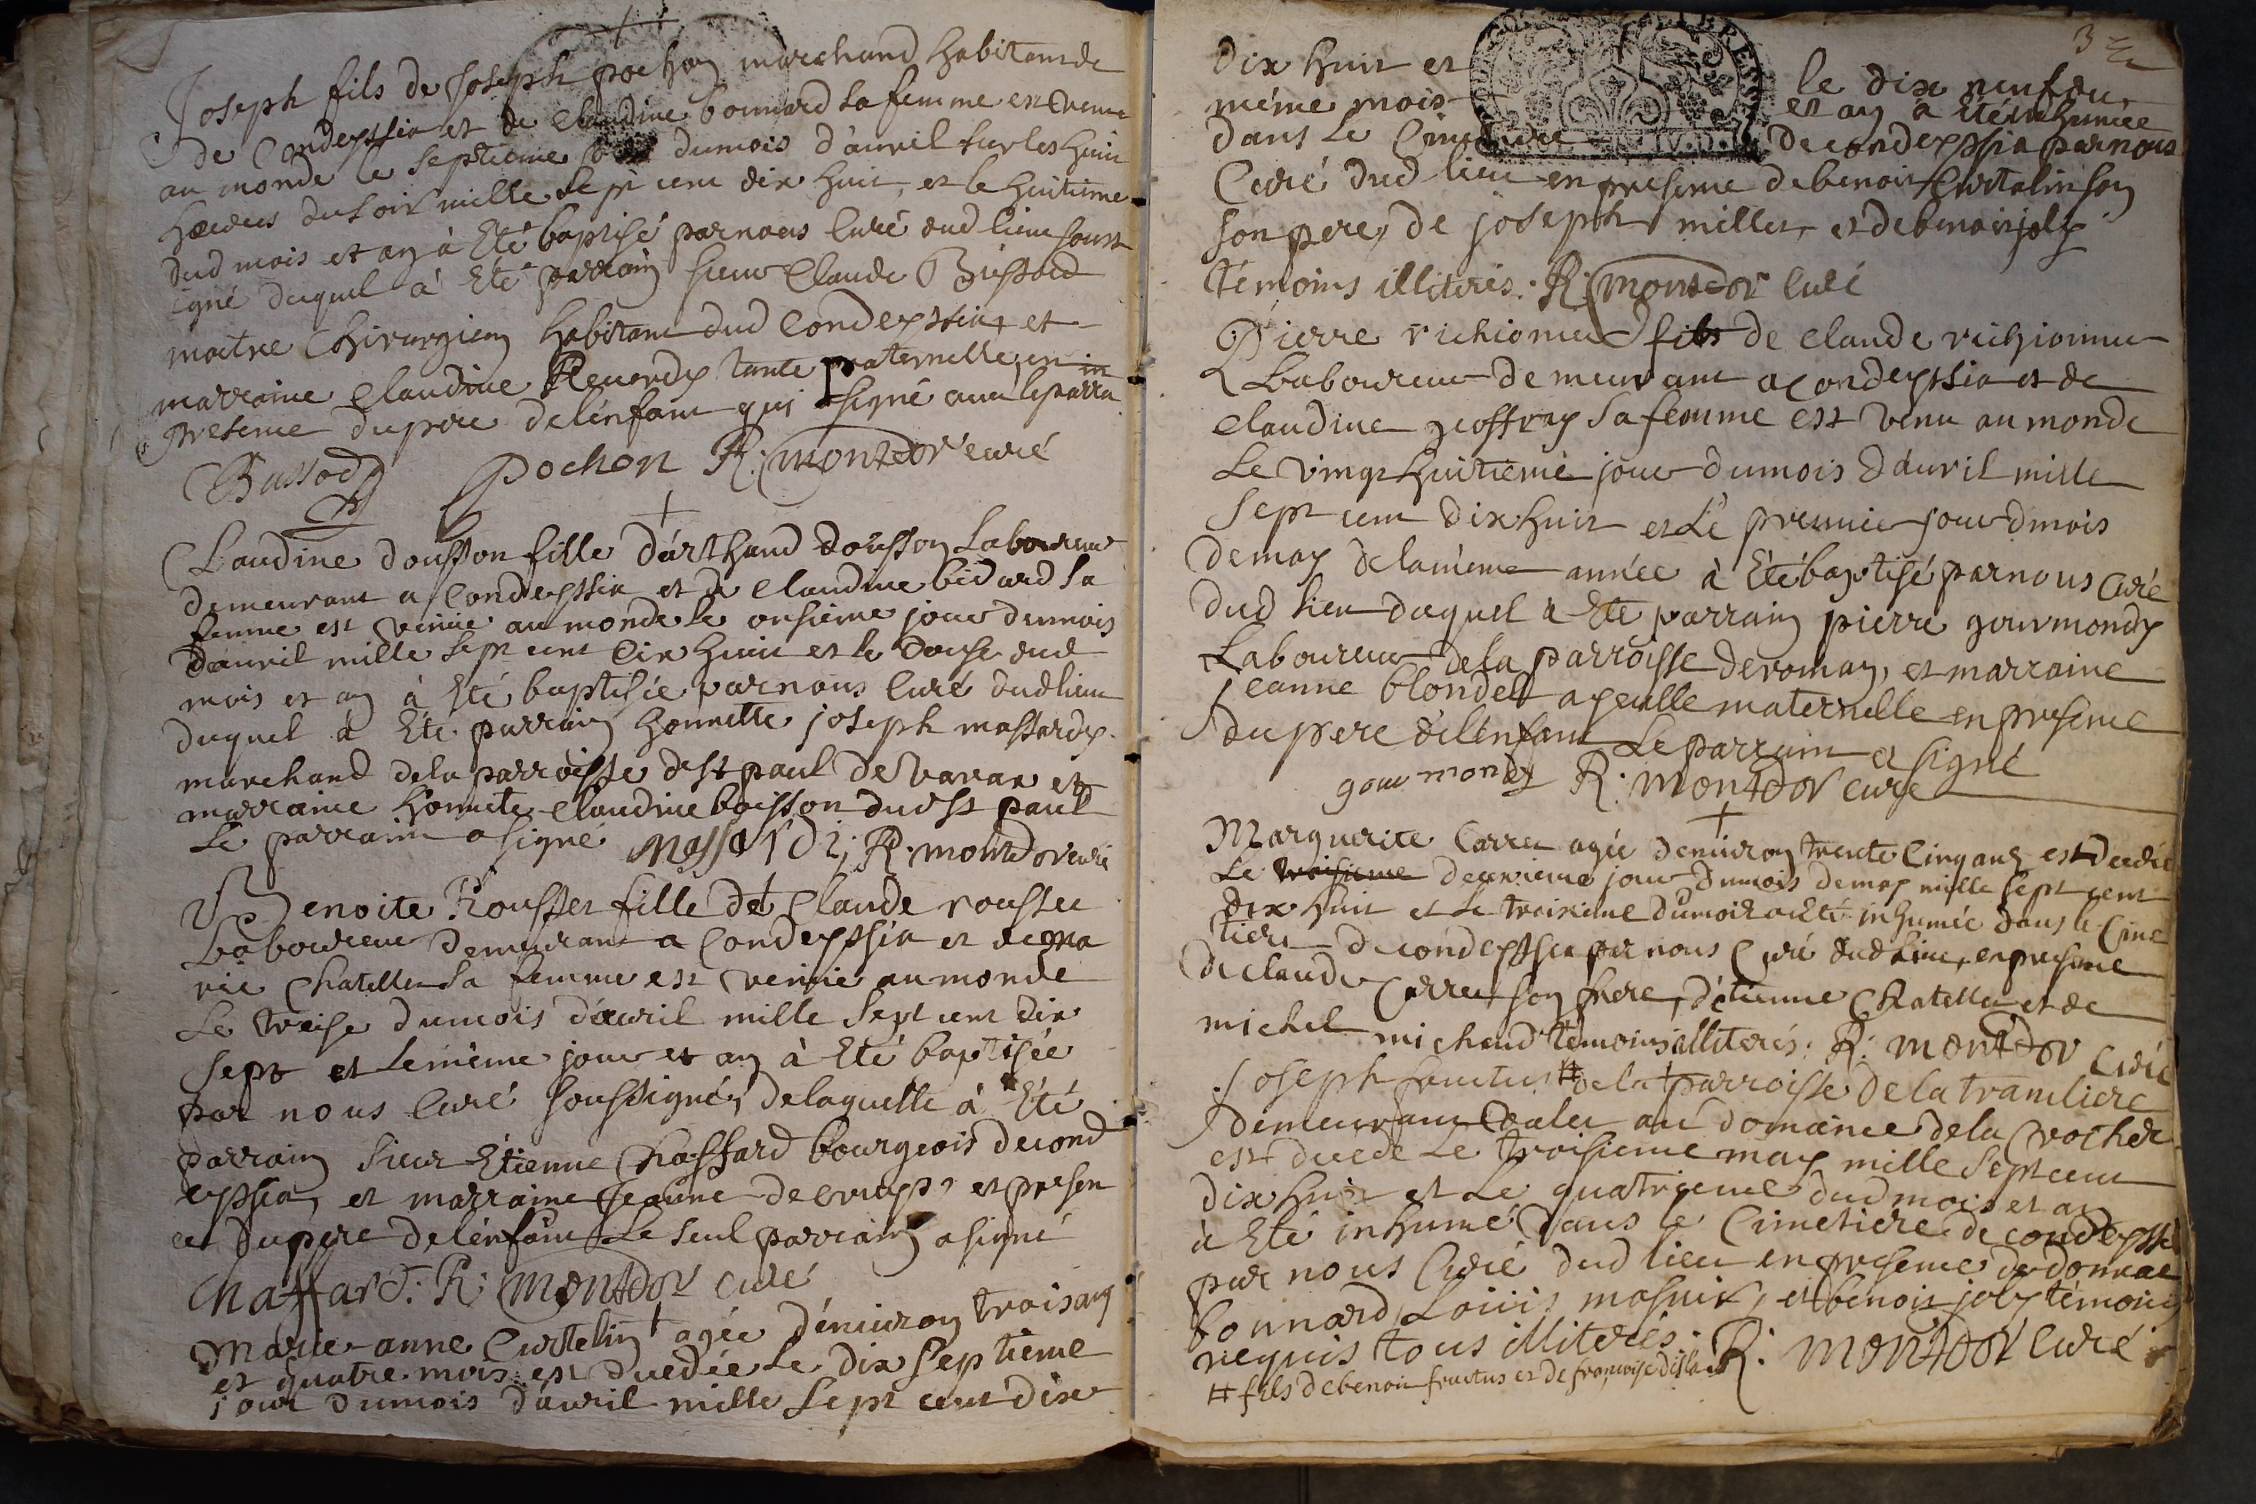 Joseph fils de Joseph pochon marchand habitant de
de Condeyssia et de Claudine bonnard sa femme est venu
au monde le septieme dumois d'avril sur les huit
heures du soir mille sept cent dix huit, et le huitieme
dud mois et an à Eté baptisé par nous Curé dud lieu souss
igné duquel à Eté parrain sieur Claude Bussod
maitre Chirurgien habitant dud Condeyssia et
marraine Claudine Reverdy tante paternelle en
presence du pere de lénfant qui a signé avec le parra in
Bussod Pochon R: montdor curé
Claudine dousson fille dárthaud dousson Laboureur
demeurant a Condeyssia et de Claudine bidard sa
femme est venüe au monde le onsieme jour dumois
dávril mille sept cent dix huit et le douse dud
mois et an à Eté baptisée par nous Curé dud lieu
duquel à Eté parrain honnette joseph massardy
marchand dela parroisse de st paul de varax et
marraine honnete Claudine boisson dud st paul
Le parrain a signé Massardi, R. montdor curé
Benoite Rousset fille de Claude rousset
Laboureur demeurant a Condeyssia et de ma
rie Chatellet sa femme est venüe au monde
Le treise dumois dávril mille sept cent dix
sept et le même jour et an à Eté baptisée
par nous Curé soussigné, delaquelle à Eté
parrain sieur Etienne Chaffard bourgeois de cond
eyssia, et marraine Jeanne et presen
ce du pere de lénfant Le seul parrain a signé
Chaffard. R: montdor curé
Marie-anne Curtelin agée dénviron trois ans
et quatre mois est decedée Le dix septieme
jour dumois dávril mille sept cent dix
3
dix huit et le dix neuf du
même mois et an à Eté inhumée
dans Le Cimetiere de condeyssia par nous
Curé dud lieu en presence de benoit Curtelin son
son pere, de joseph millet, et de benoit joly
témoins illiterés. R: montdor Curé
Pierre richionnet fils de Claude richionnet
Laboureur demeurant a Condeyssia et de
Claudine geoffray sa femme est venu au monde
Le vingt huitieme jour dumois dávril mille
sept cent dix huit et Le premier jour dmois
de may de la même année à Eté baptisé par nous Curé
dud lieu duquel à Eté parrain pierre gourmondy
Laboureur de la parroisse de roman, et marraine
jeanne blondet ayeulle maternelle en presence
du pere de lénfant Le parrain a signé
gourmondy R: montdor curé
Marguerite Carret agée dénviron trente Cinq ans est decedée
Le troisieme deuxieme jour dumois de may mille sept cent
dix huit et Le troisieme dumois a Eté inhumée dans le Cime
tiere de condeyssia par nous Curé dud lieu, en presence
de claude Carret son frere, détienne Chatellet et de
michel michaud témoins illiterés. R: montdor Curé
Joseph fructus # de la parroisse de la tranliere
demeurant au domaine de la rocher
est decedé Le troisieme may mille sept cent
dix huit et Le quatrieme dud mois et an
à Eté inhumé dans le Cimetiere de condeyssia
par nous Curé dud lieu en presence de
bonnard, Loüis masuir, et benoit joly témoins
requis tous illiterés. R: montdor Curé
# fils de benoit fructus et de françoise